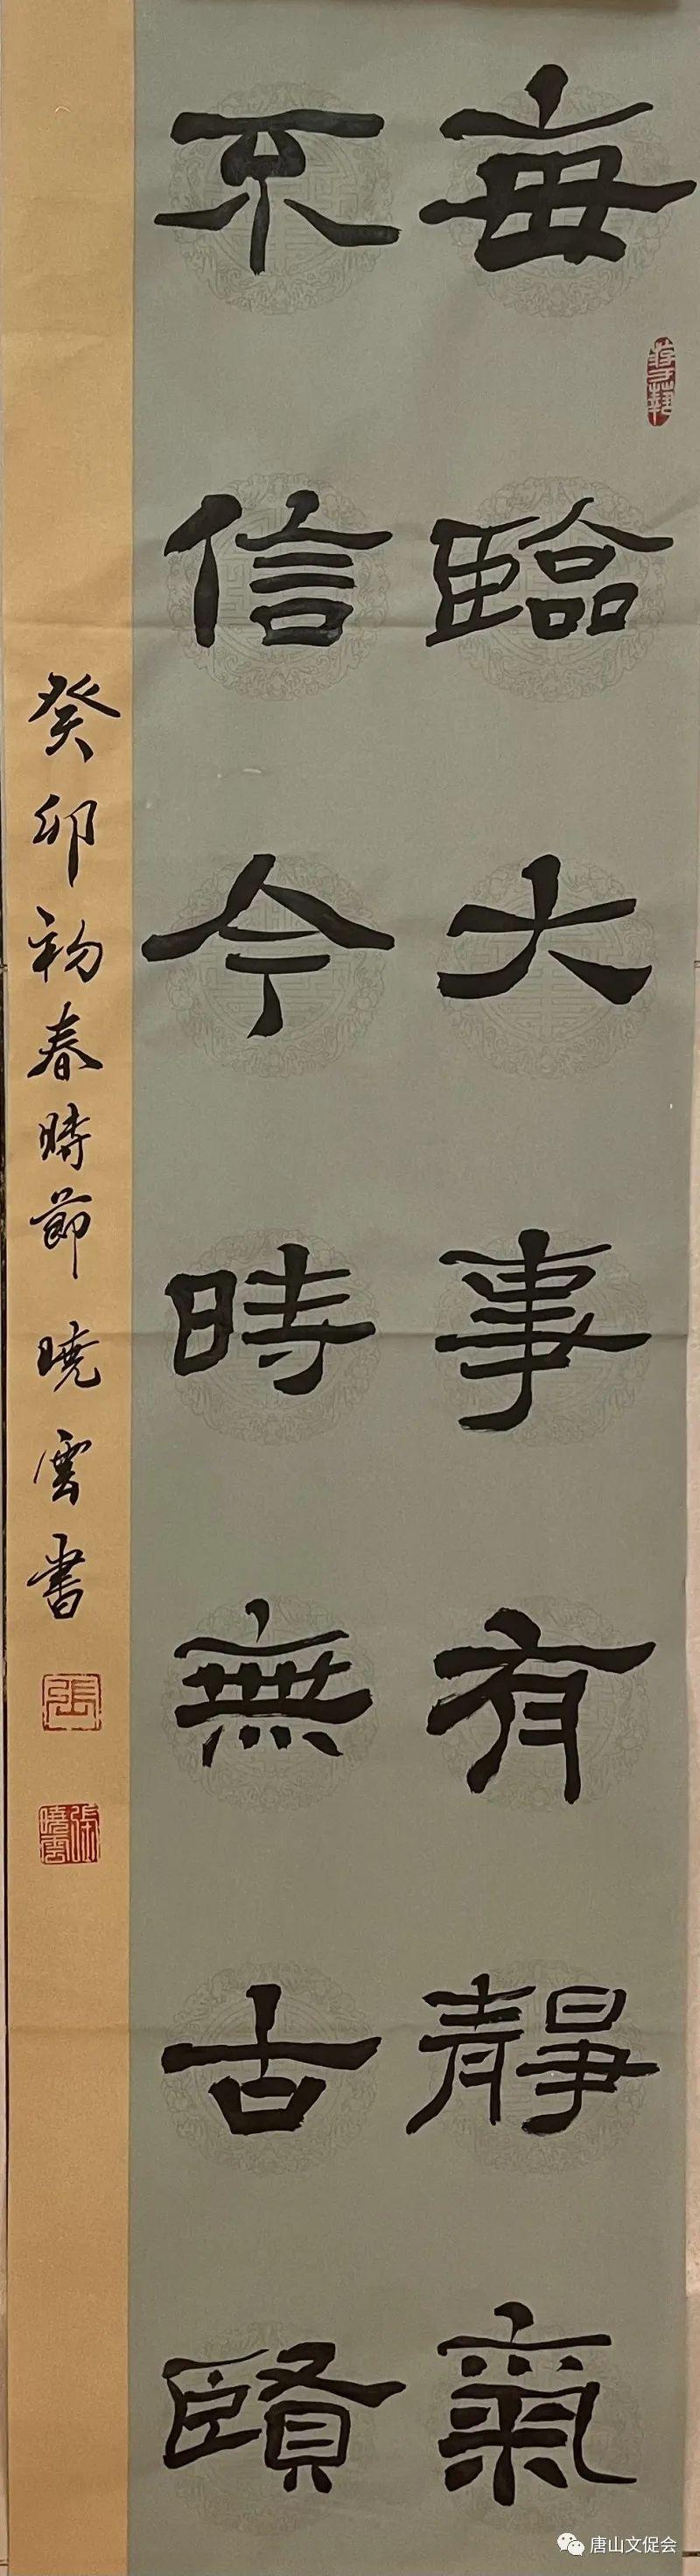 每臨大事有靜氣
不信今時無古賢
癸卯初春時節 曉雲書
張
張曉雲
唐山文促会